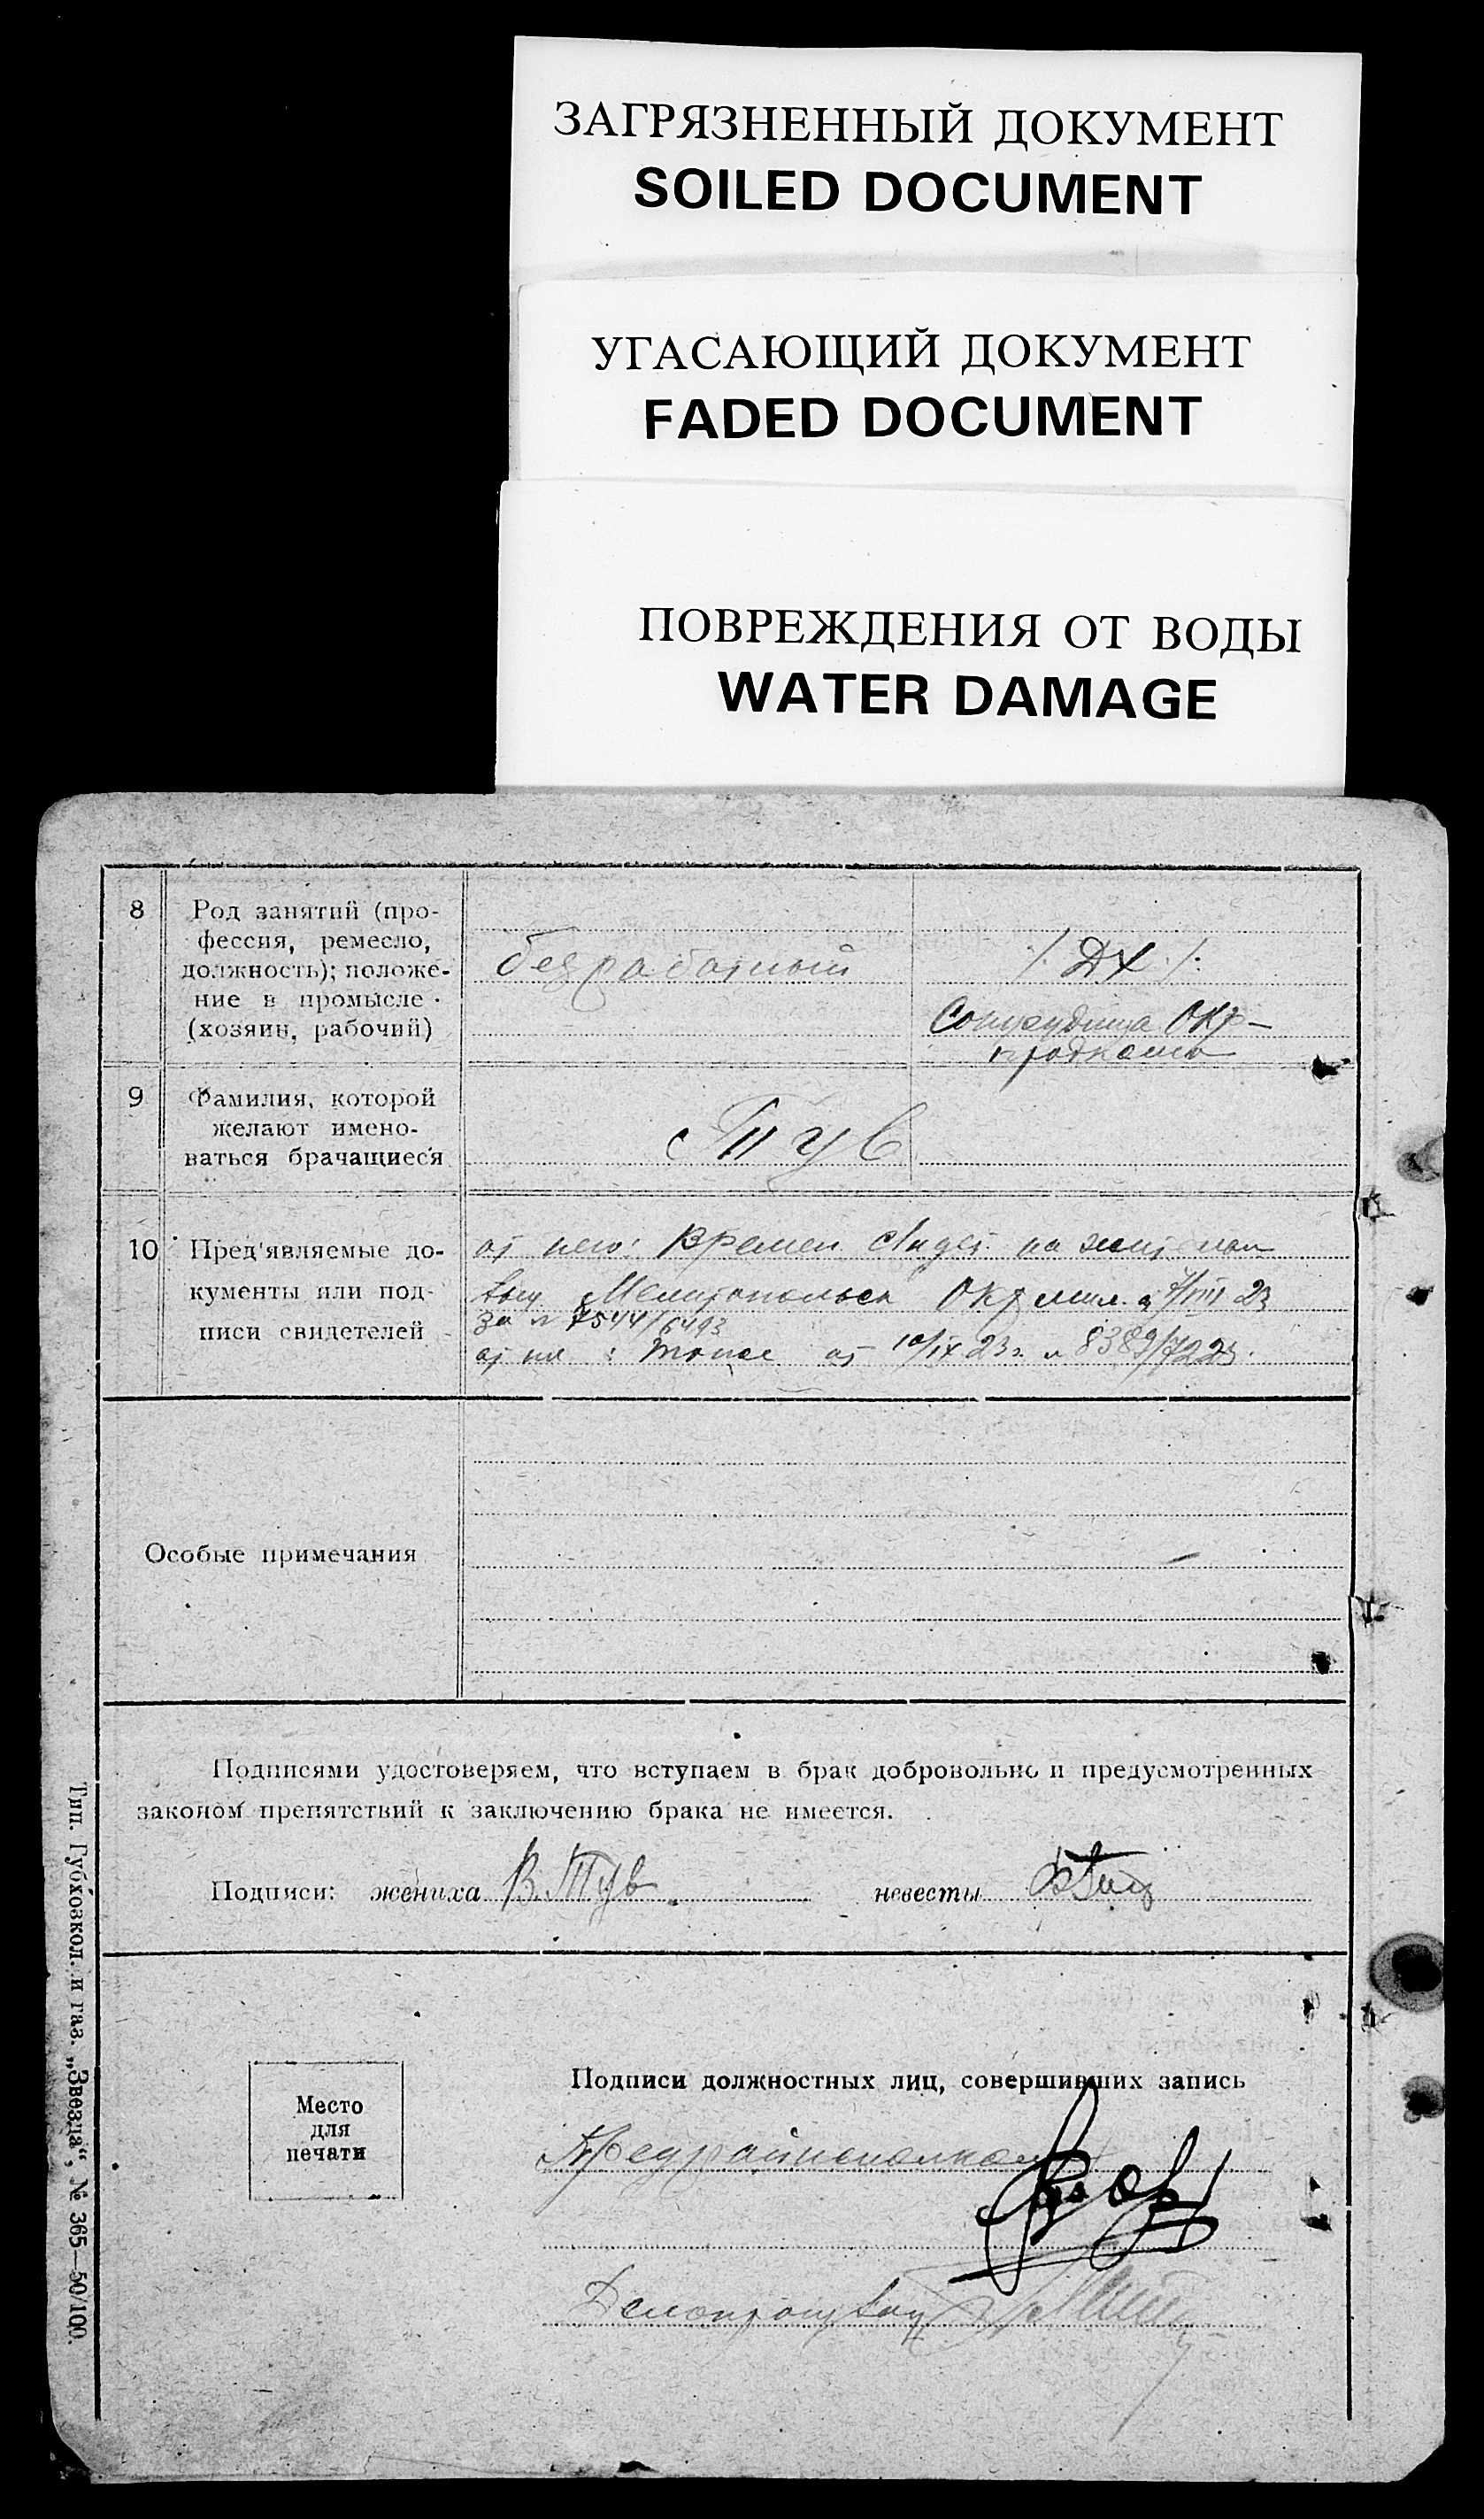 ЗАГРЯЗНЕННЫЙ ДОКУМЕНТ
SOILED DOCUMENT
УГАСАЮЩИЙ ДОКУМЕНТ
FADED DOCUMENT
ПОВРЕЖДЕНИЯ ОТ ВОДЫ
WATER DAMAGE
8
Род занятий (про-
фессия, ремесло,
должность); положе-
ние в промысле
(хозяин, рабочий)
безработный
/. ДХ ./.
Сотрудница Окр-
продкома
9
Фамилия, которой
желают имено-
ваться брачащиеся
Тув
10
Пред'являемые до-
кументы или под-
писи свидетелей
от него: Времен на жит
выд Мелитопольск Окр мил. 23
за № 7544/6493
от 10/IX 23 г. № 8389/7225.
Особые примечания
Подписями удостоверяем, что вступаем в брак добровольно и предусмотренных
законом препятствий к заключению брака не имеется.
Подписи: жениха В. Тув невесты
Место
для
печати
Подписи должностных лиц, совершивших запись
Предрайисполкома
Делопроизвод
Тип. Губхозкол. и газ. „Звезда“, № 365—50/100.